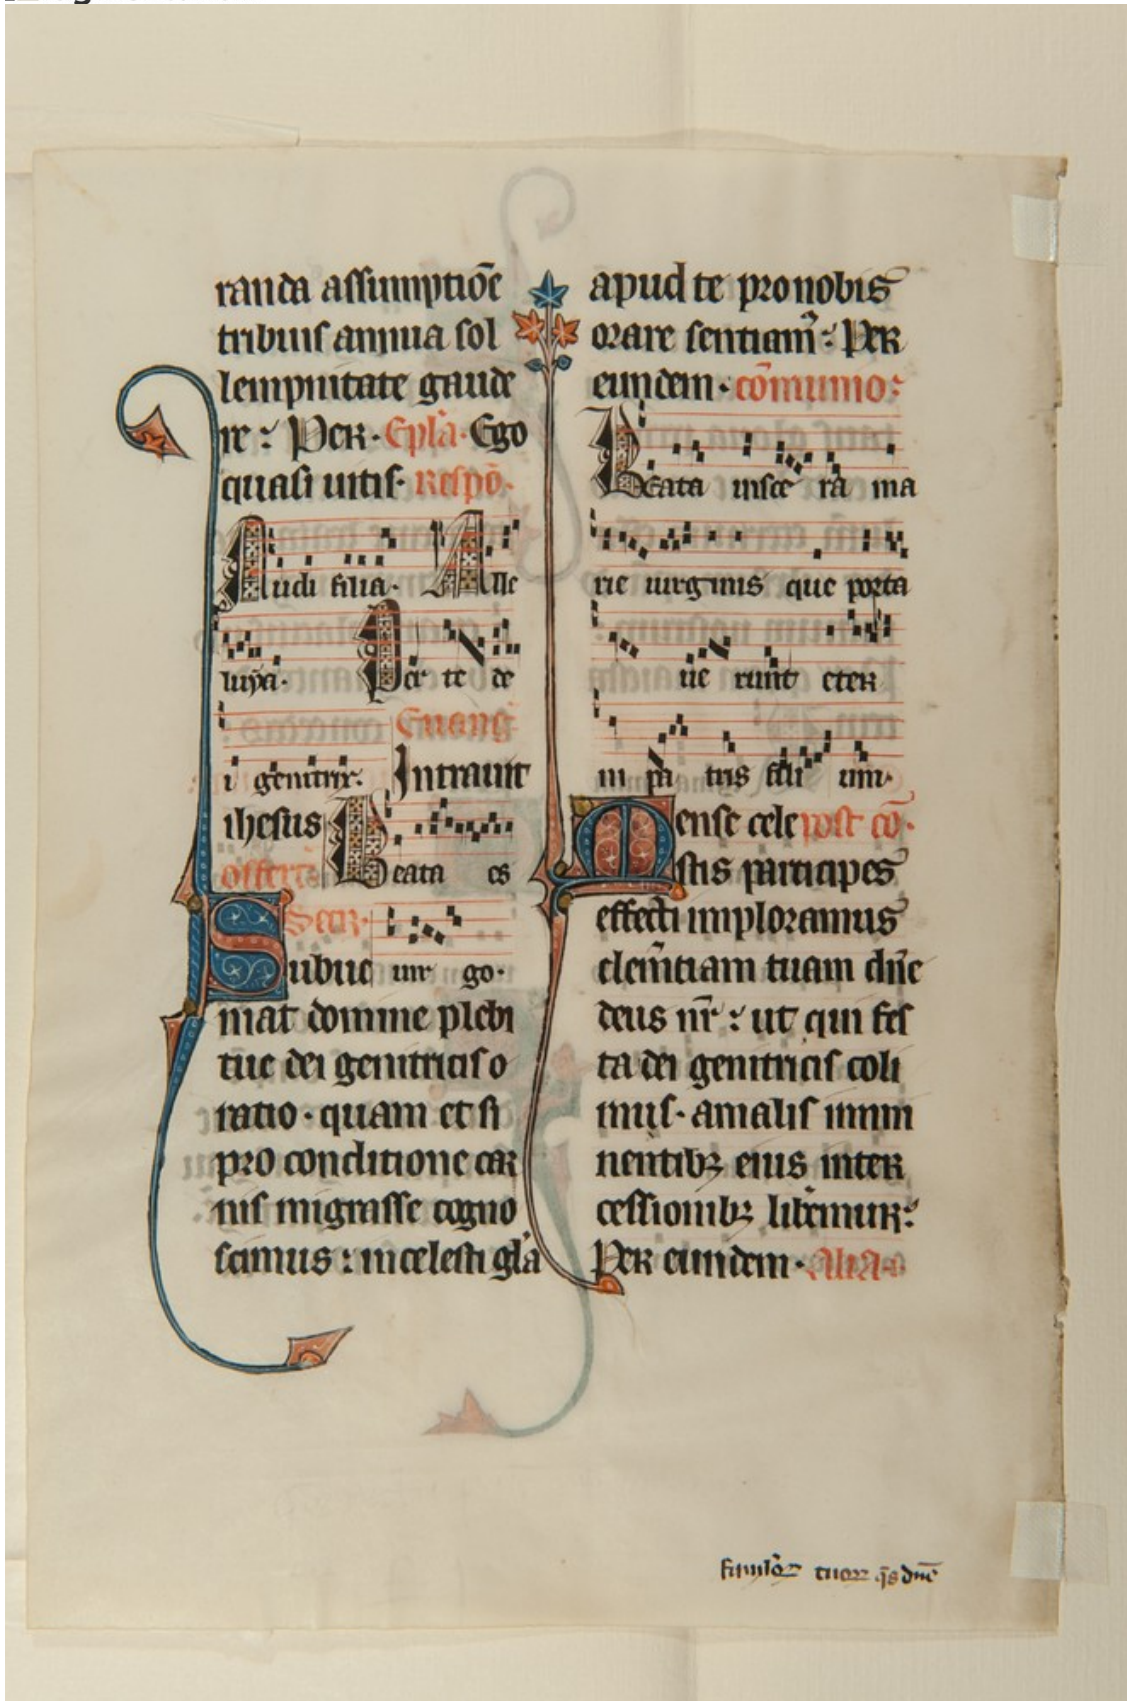 randa assumptiõe
tribuis annua sol
lempnitate gaude
re : Per · Ep̃la · Ego
quasi uitis · Respõ ·
Audi filia · Alle
luya · Per te de
Euang
i genitrix · Intrauit
ihesus Beata es
offert
Secr ·
Subue uir go ·
niat domine plebi
tue dei genitricis o
ratio · quam et si
pro conditione car
nis migrasse cogno
scimus : in celesti gl̃a
apud te pro nobis
orare sentiam᷑ : Per
eundem · cõmunio :
Beata uisce ra ma
rie uirginis que porta
ue runt eter
ni pa tris fili um ·
Mense cele post cõ ·
stis participes
effecti imploramus
clem̃tiam tuam dñe
deus nr̃ : ut qui fes
ta dei genitricis coli
mus · a malis inmi
nentibꝫ eius inter
cessionibꝫ libemur :
Per eundem · Alia ·
famulõꝝ tuoꝝ q̃s dñe